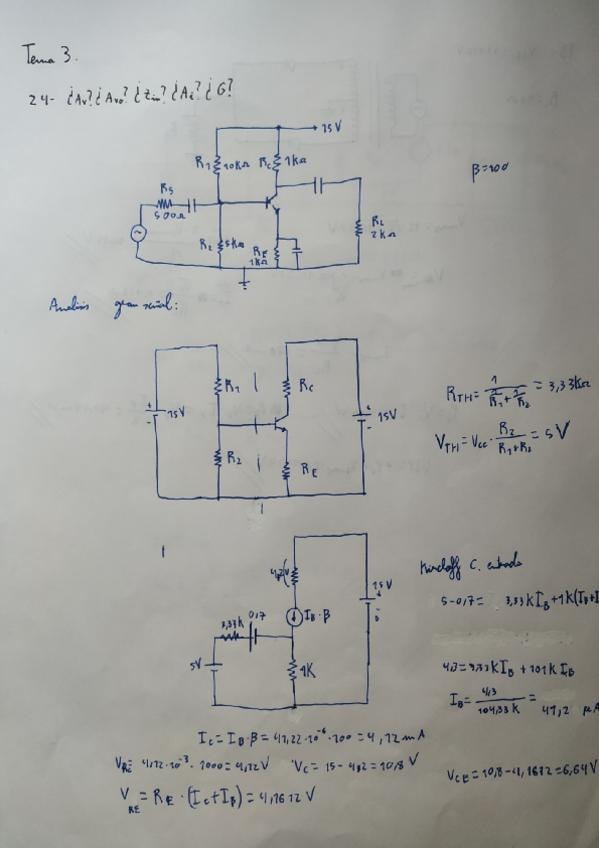 Tema 3.
24- ¿Av? ¿Avo? ¿Zin? ¿Ai? ¿G?
15V
R1 10KΩ RC 1KΩ
β=100
RS
500Ω
R2 5KΩ
RE
1KΩ
RL
2KΩ
Analisis gran señal:
R1
RC
15V
15V
R2
RE
RTH = 1 / (1/R1 + 1/R2) = 3,33KΩ
VTH = Vcc · R2 / (R1+R2) = 5V
15V
IB·β
3,33K
0,7
5V
1K
Kirchoff C. entrada
5-0,7= 3,33KIB+1K(IB+I
4,3=3,33KIB + 101KIB
IB= 4,3 / 104,33K = 41,2 μA
IC = IB·β = 41,22·10⁻⁶·100 = 4,12mA
VRC= 4,12·10⁻³·1000=4,12V VC= 15-4,12=10,8V
VRE = RE·(IC+IB)=4,1612V
VCE=10,8-4,1612=6,64V